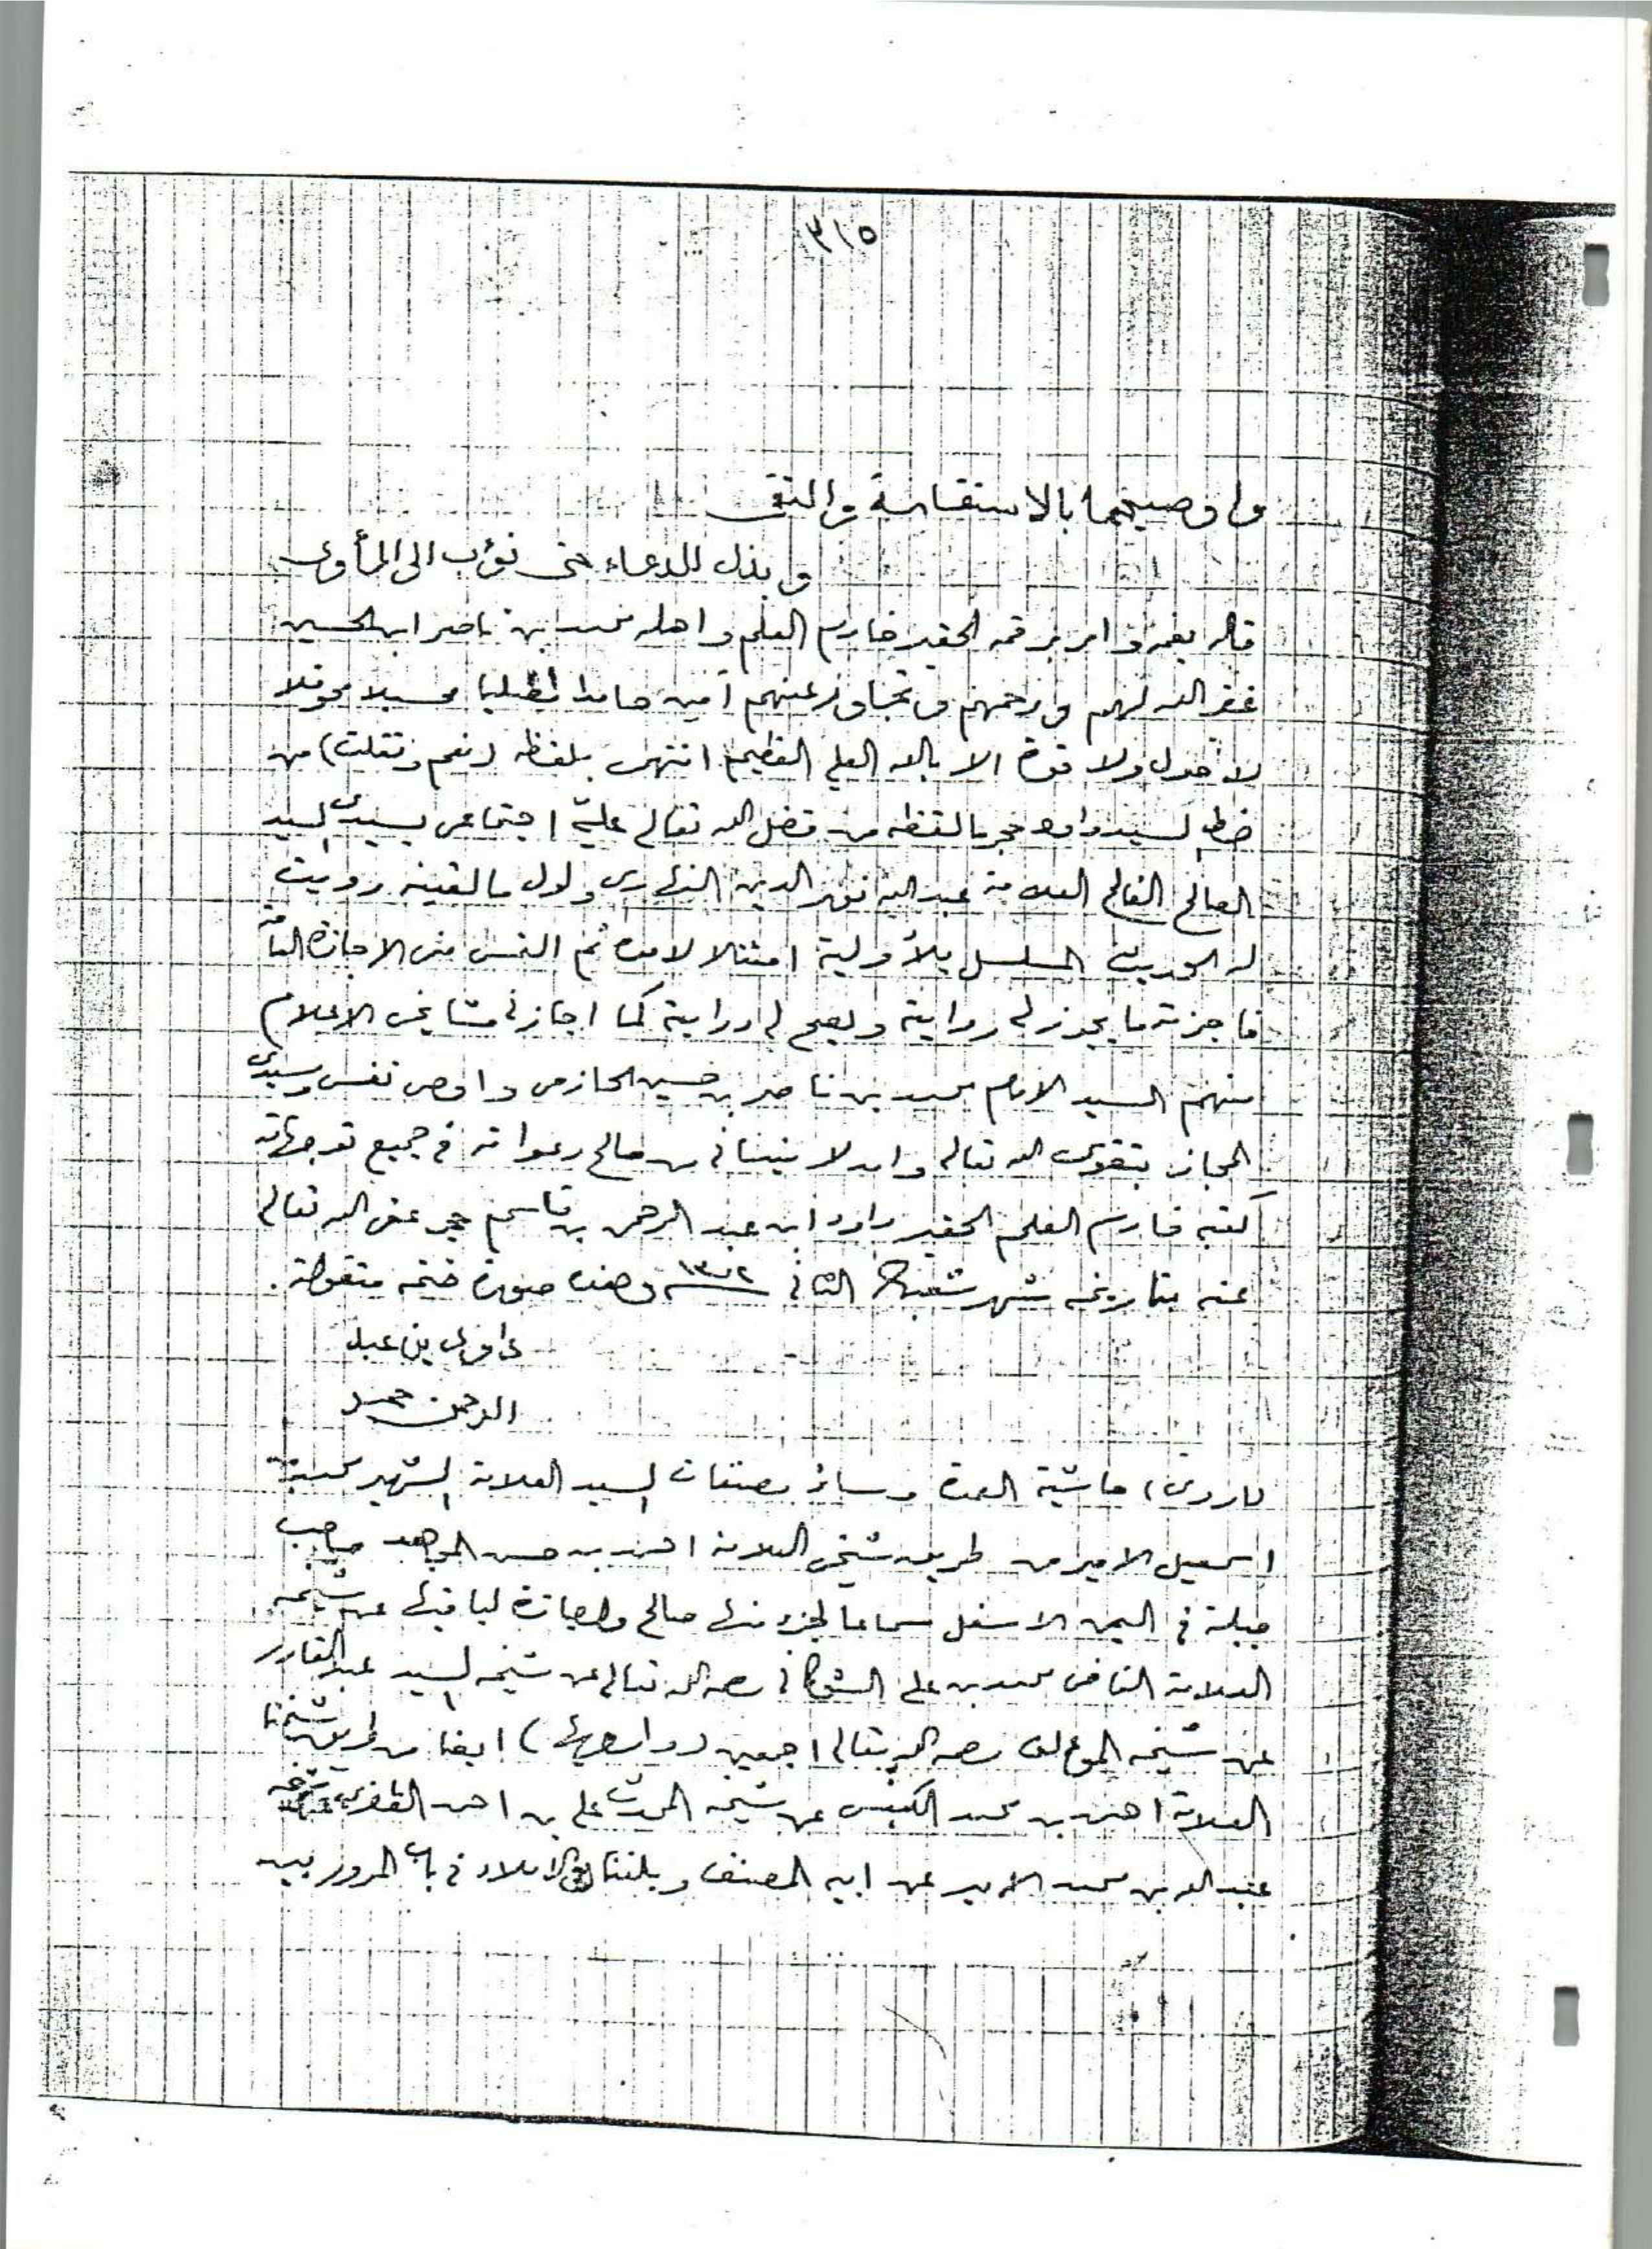 ٣١٥
واوصيهما بالاستقامة والتقى
وبذل الدعاء حتى نؤب الى المأوى
قاله بفمه وامر برقمه الحقير خادم العلم واهله محمد بن ناصر ابن الحسين
غفر الله لهم ورحمهم وتجاوز عنهم آمين حامدا مصليا محسبلا محوقلا
لا حول ولا قوة الا بالله العلي العظيم انتهى بلفظه (نعم ونقلت) من
خط السيد داود حجر ما لفظه من فضل الله تعالى عليّ اجتماعي بسيدي السيد
العالم العلامة عبد الله نور الدين النهاري واول ما لقيته رويت
له الحديث المسلسل بالأولية امتثالا لامره ثم التمس مني الاجازة العامة
فاجزته ما يجوز لي رواية ويصح لي دراية كما اجازني مشايخي الاعلام
منهم السيد الامام محمد بن ناصر بن حسين الحازمي واوصي نفسي وسيدي
المجاز بتقوى الله تعالى وان لا ينساني من صالح دعواته في جميع توجهاته
كتبه خادم العلم الحقير داود ابن عبد الرحمن بن قاسم حجر عفى الله تعالى
عنه بتاريخه شهر شعبان الثاني ١٣٠٢ وهذه صورة ختمه منقولة.
داود بن عبد
الرحمن حجر
(اروي) حاشية العمدة وسائر مصنفات السيد العلامة الشهير محمد بن
اسمعيل الامير من طريق شيخي العلامة احمد بن حسن المجاهد صاحب
جبلة في اليمن الاسفل سماعا لجزء منها صالح واجازة لباقيها عن شيخه
العلامة القاضي محمد بن علي الشوكاني رحمه الله تعالى عن شيخه السيد عبد القادر
عن شيخه المؤلف رحمه الله تعالى اجمعين (وارويها) ايضا من طريق شيخنا
العلامة احمد بن محمد الكبسي عن شيخه المحدث علي بن احمد الظفري عن شيخه
عبد الله بن محمد الامير عن ابيه المصنف وبلغنا في الاملاء في باب المرور بين